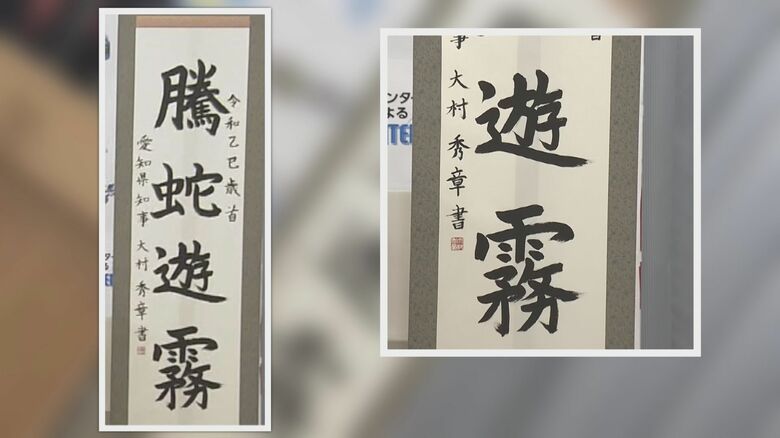 令和乙巳歳首
騰蛇遊霧
愛知県知事 大村秀章書
遊霧
事 大村秀章書
ンタ
よる